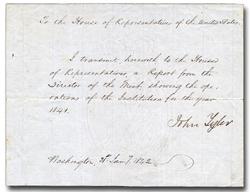 To the House of Representatives of the United States.
I transmit herewith to the House
of Representatives, a Report from the
Director of the Mint, showing the ope-
rations of the Institution for the year
1841.
John Tyler
Washington, Jany 1842